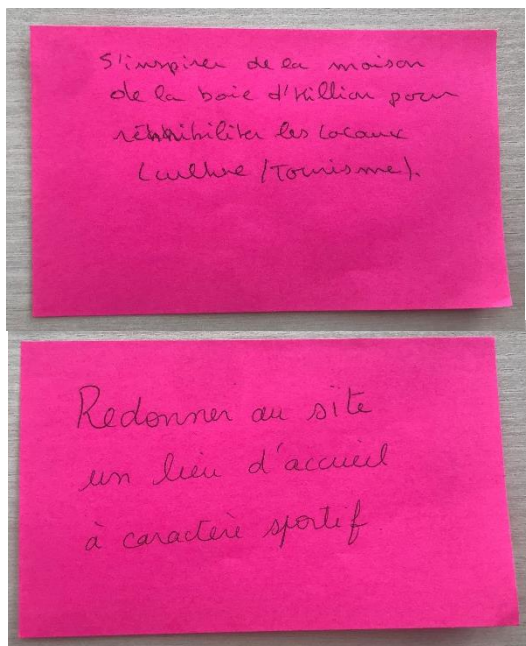 S'inspirer de la maison
de la baie d'Hillion pour
réhabiliter les locaux
(culture/Tourisme).
Redonner au site
un lieu d'accueil
à caractère sportif